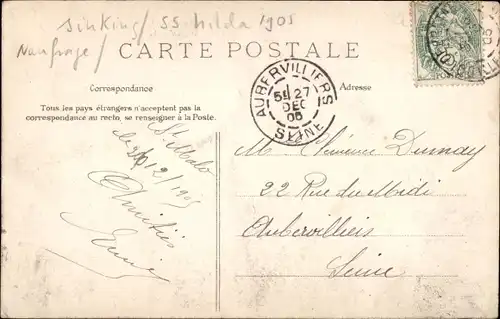 sinking / SS hilda 1905
Naufrage /
CARTE POSTALE
Correspondance
Adresse
Tous les pays étrangers n'acceptent pas la
correspondance au recto, se renseigner à la Poste.
AUBERVILLIERS
27
DEC
05
SEINE
St Malo
le 12/1905
Amitiés
M. Clémence Dumay
22 Rue du Midi
Aubervilliers
Seine